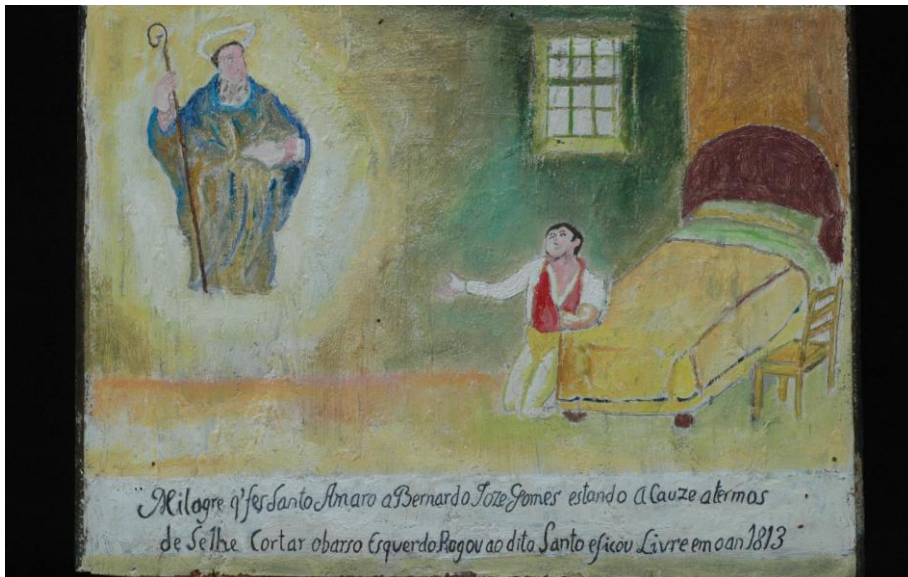 Milagre q' fes Santo Amaro a Bernardo Joze Gomes estando a Cauze a termos
de Selhe Cortar obarso Esquerdo Rogou ao dito Santo eficou Livre em oan 1813